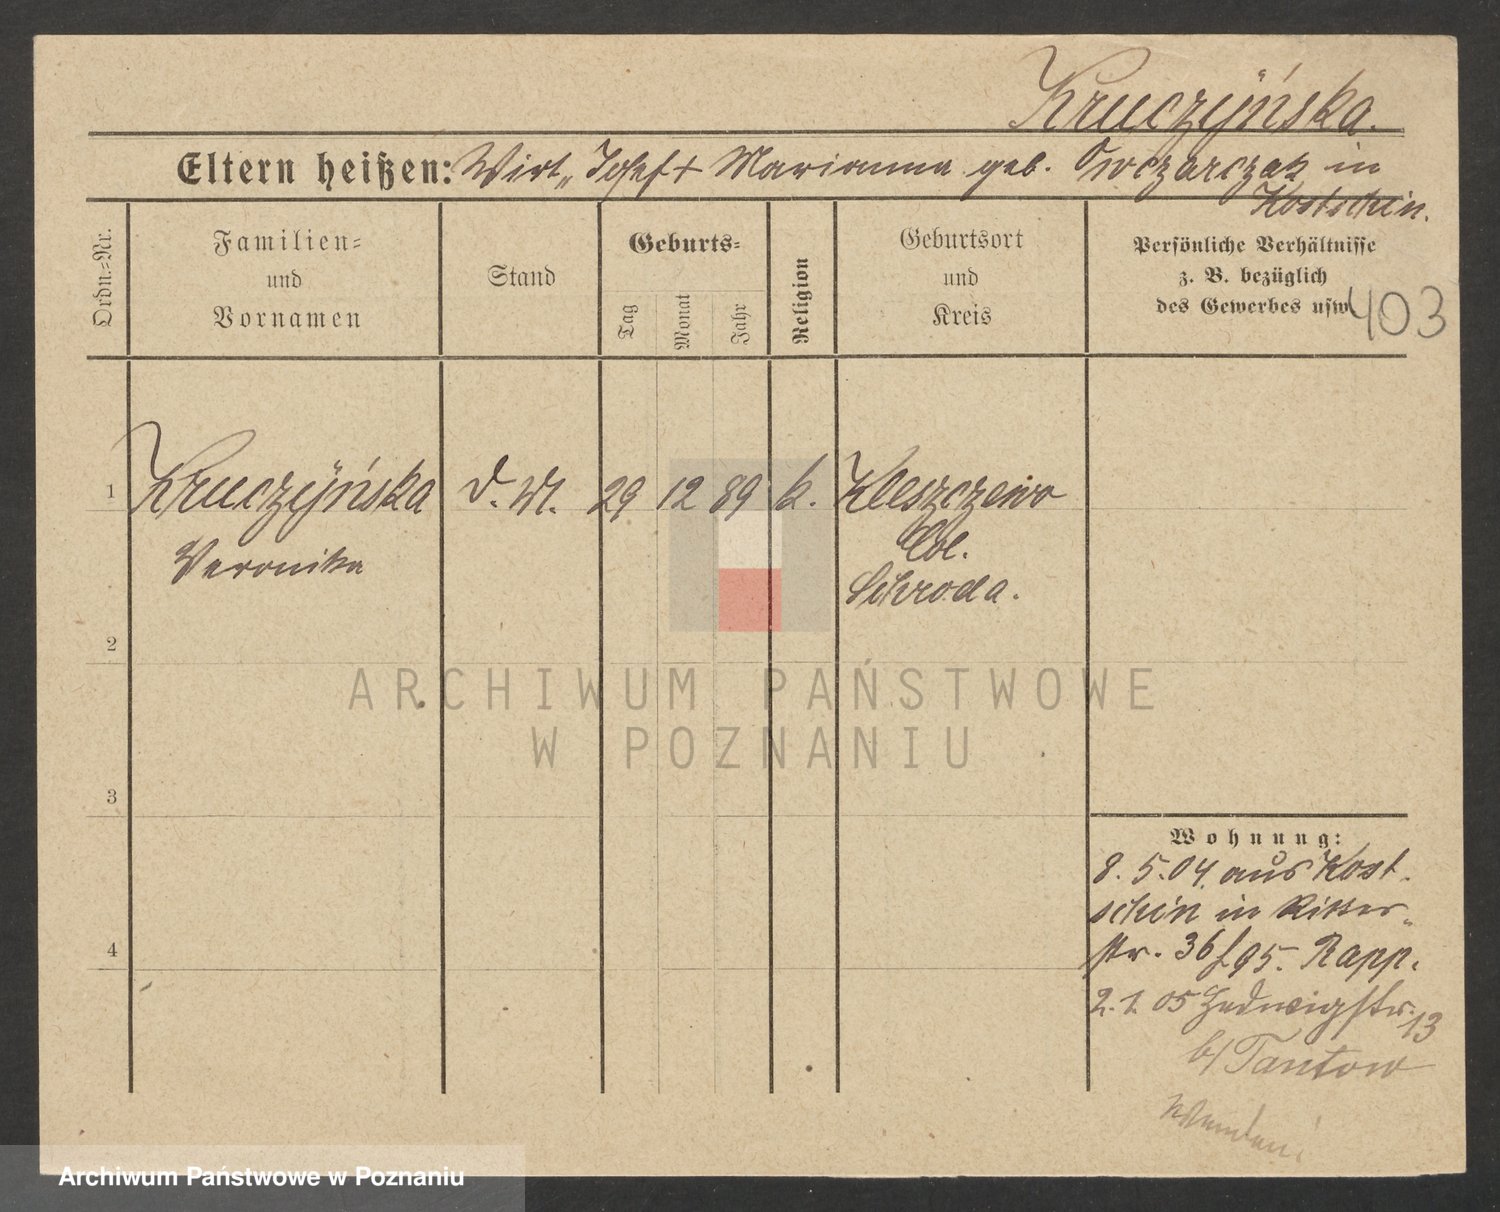 Kruczyńska.
Eltern heißen: Wirt Josef + Marianna geb. Owczarczak in
Kostschin.
Ordn.-Nr.
Familien-
und
Vornamen
Stand
Geburts-
Tag
Monat
Jahr
Religion
Geburtsort
und
Kreis
Persönliche Verhältnisse
z. B. bezüglich
des Gewerbes usw.
403
1
Kruczyńska
Veronika
d. M.
29
12
89
k.
Kleszczewo
Col.
Schroda.
2
ARCHIWUM PAŃSTWOWE
W POZNANIU
3
Wohnung:
8. 5. 04. aus Kost-
schin in Ritter-
str. 36 f 95. Rapp.
4
2. 1. 05 Hedwigstr. 13
b/ Tantow
Archiwum Państwowe w Poznaniu